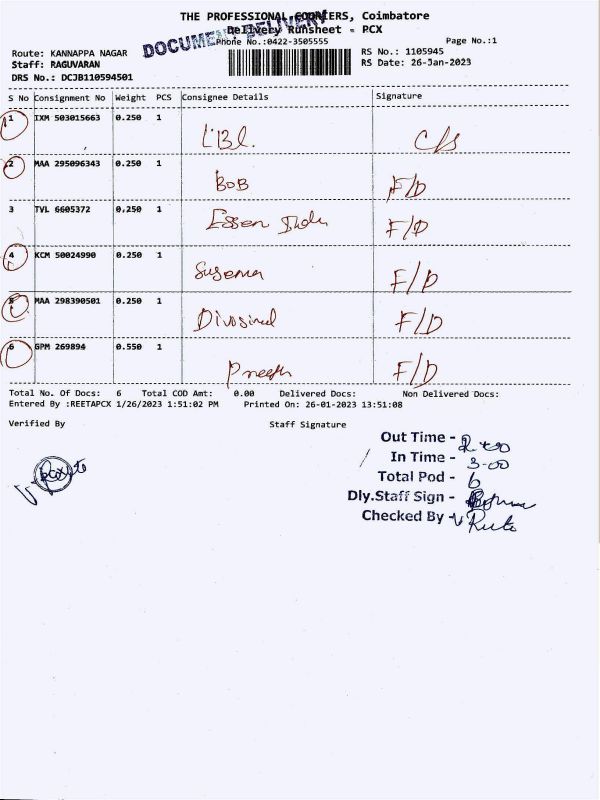 THE PROFESSIONAL COURIERS, Coimbatore
Delivery Runsheet - PCX
DOCUMENT DELIVERY
Phone No.:0422-3505555
Page No.:1
Route: KANNAPPA NAGAR
RS No.: 1105945
Staff: RAGUVARAN
RS Date: 26-Jan-2023
DRS No.: DCJB110594501
S No Consignment No Weight PCS Consignee Details Signature
1 IXM 503015663 0.250 1
C/S
2 MAA 295096343 0.250 1
BOB F/D
3 TVL 6605372 0.250 1
F/D
4 KCM 50024990 0.250 1
F/D
5 MAA 298390501 0.250 1
F/D
6 GPM 269894 0.550 1
Preeth F/D
Total No. Of Docs: 6 Total COD Amt: 0.00 Delivered Docs: Non Delivered Docs:
Entered By :REETAPCX 1/26/2023 1:51:02 PM Printed On: 26-01-2023 13:51:08
Verified By Staff Signature
Out Time -
In Time - 3-00
Total Pod - 6
Dly.Staff Sign -
Checked By -